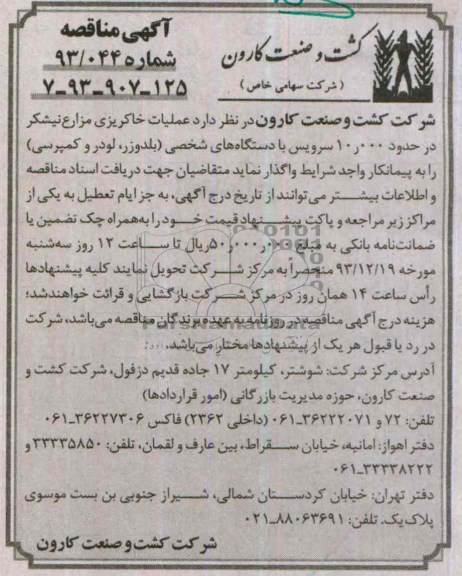 آگهی مناقصه
شماره ۹۳/۰۴۴
۷-۹۳-۹۰۷-۱۲۵
کشت و صنعت کارون
(شرکت سهامی خاص)
شرکت کشت و صنعت کارون در نظر دارد عملیات خاکریزی مزارع نیشکر
در حدود ۱۰٫۰۰۰ سرویس با دستگاه‌های شخصی (بلدوزر، لودر و کمپرسی)
را به پیمانکار واجد شرایط واگذار نماید متقاضیان جهت دریافت اسناد مناقصه
و اطلاعات بیشتر می‌توانند از تاریخ درج آگهی، به جز ایام تعطیل به یکی از
مراکز زیر مراجعه و پاکت پیشنهاد قیمت خود را به‌همراه چک تضمین یا
ضمانت‌نامه بانکی به مبلغ ۵۰٫۰۰۰٫۰۰۰ ریال تا ساعت ۱۲ روز سه‌شنبه
مورخه ۹۳/۱۲/۱۹ منحصراً به مرکز شرکت تحویل نمایند کلیه پیشنهادها
رأس ساعت ۱۴ همان روز در مرکز شرکت بازگشایی و قرائت خواهند شد؛
هزینه درج آگهی مناقصه در روزنامه به عهده برندگان مناقصه می‌باشد، شرکت
در رد یا قبول هر یک از پیشنهادها مختار می‌باشد.
آدرس مرکز شرکت: شوشتر، کیلومتر ۱۷ جاده قدیم دزفول، شرکت کشت و
صنعت کارون، حوزه مدیریت بازرگانی (امور قراردادها)
تلفن: ۷۲ و ۳۶۲۲۲۰۷۱-۰۶۱ (داخلی ۲۳۶۲) فاکس ۳۶۲۲۷۳۰۶-۰۶۱
دفتر اهواز: امانیه، خیابان سقراط، بین عارف و لقمان، تلفن: ۳۳۳۳۵۸۵۰ و
۳۳۳۳۸۲۲۲-۰۶۱
دفتر تهران: خیابان کردستان شمالی، شیراز جنوبی بن بست موسوی
پلاک یک. تلفن: ۸۸۰۶۳۶۹۱-۰۲۱
شرکت کشت و صنعت کارون